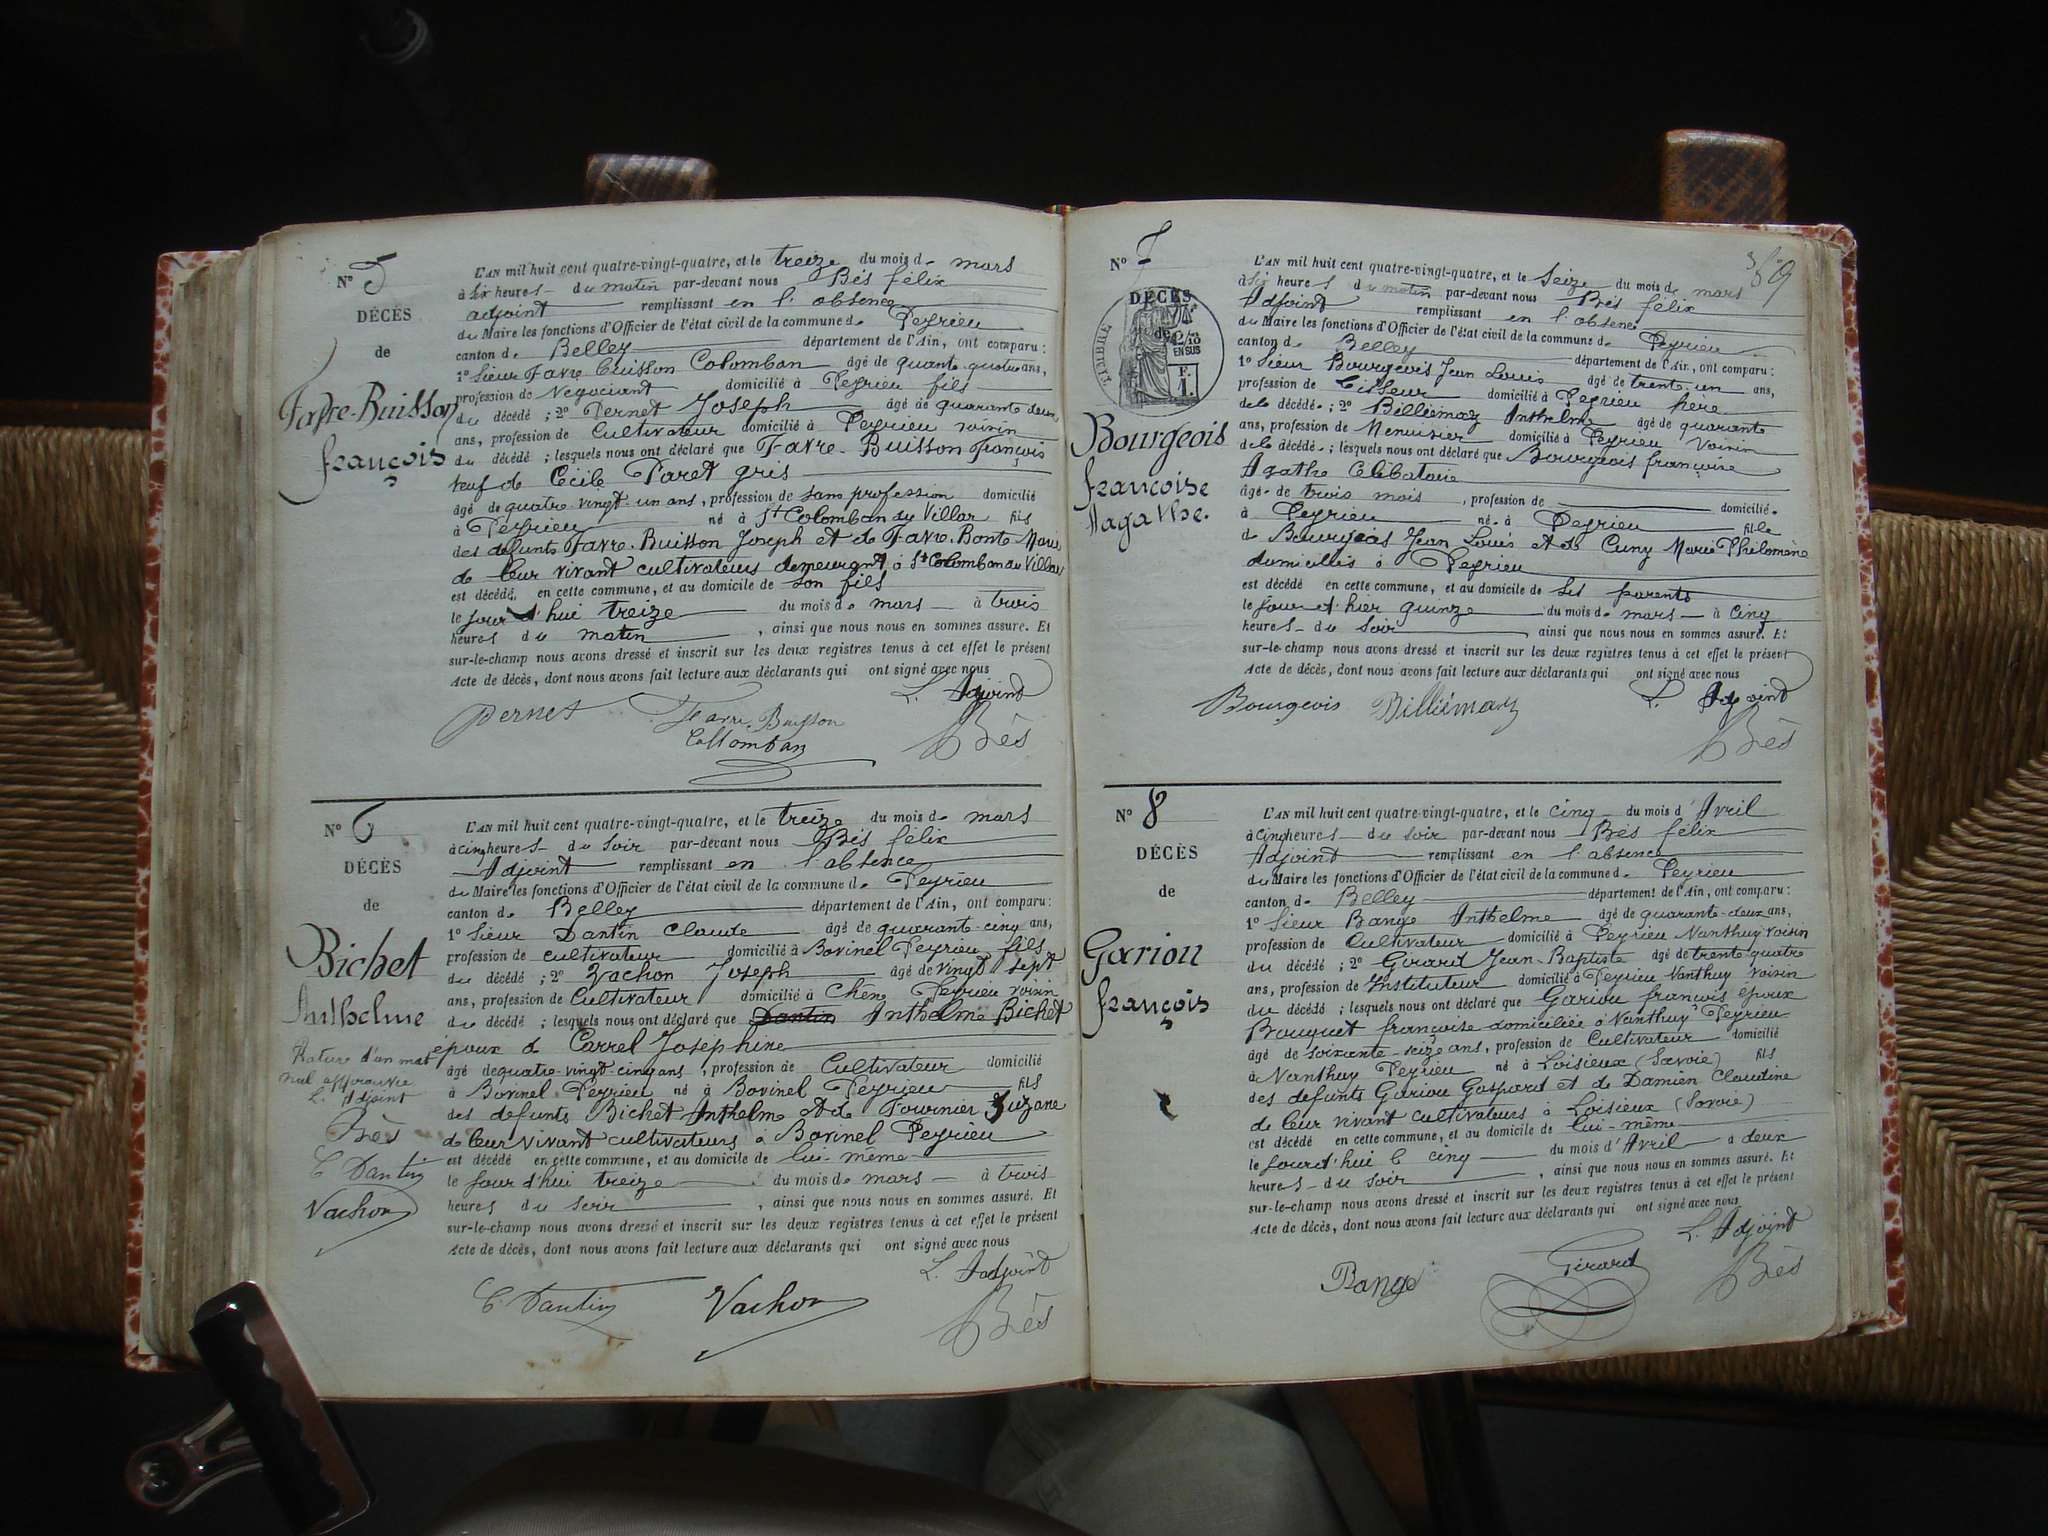 N° 5
DÉCÈS
de
Favre-Buisson
françois
L'AN mil huit cent quatre-vingt-quatre, et le treize du mois de mars
à six heures du matin par-devant nous Bés félix
adjoint remplissant en l'absence
du Maire les fonctions d'Officier de l'état civil de la commune de Peyrieu
canton de Belley département de l'Ain, ont comparu :
1° Sieur Favre Buisson Colomban âgé de quarante quatre ans,
profession de Négociant domicilié à Peyrieu fils
du décédé ; 2° Pernet Joseph âgé de quarante deux
ans, profession de Cultivateur domicilié à Peyrieu voisin
du décédé ; lesquels nous ont déclaré que Favre-Buisson François
veuf de Cécile Paret gris
âgé de quatre vingt-un ans, profession de sans profession domicilié
à Peyrieu né à St Colomban du Villar fils
des défunts Favre-Buisson Joseph et de Favre-Bonte Marie
de leur vivant cultivateurs demeurant à St Colomban du Villar
est décédé en cette commune, et au domicile de son fils
le jour d'hui treize du mois de mars à trois
heures du matin, ainsi que nous nous en sommes assuré. Et
sur-le-champ nous avons dressé et inscrit sur les deux registres tenus à cet effet le présent
Acte de décès, dont nous avons fait lecture aux déclarants qui ont signé avec nous
L. Adjoint
Pernet Favre-Buisson Collomban Bès
N° 6
DÉCÈS
de
Bichet
Anthelme
Rature d'un mot
nul approuvée
L. Adjoint
Bès
C Dantin
Vachon
L'AN mil huit cent quatre-vingt-quatre, et le treize du mois de mars
à cinq heures du soir par-devant nous Bés félix
Adjoint remplissant en l'absence
du Maire les fonctions d'Officier de l'état civil de la commune de Peyrieu
canton de Belley département de l'Ain, ont comparu :
1° Sieur Dantin Claude âgé de quarante-cinq ans,
profession de cultivateur domicilié à Bovinel Peyrieu fils
du décédé ; 2° Vachon Joseph âgé de vingt sept
ans, profession de Cultivateur domicilié à Chêne Peyrieu voisin
du décédé ; lesquels nous ont déclaré que Dantin Anthelme Bichet
époux de Carrel Josephine
âgé de quatre-vingt cinq ans, profession de Cultivateur domicilié
à Bovinel Peyrieu né à Bovinel Peyrieu fils
des défunts Bichet Anthelme et de Fournier Suzane
de leur vivant cultivateurs à Bovinel Peyrieu
est décédé en cette commune, et au domicile de lui-même
le jour d'hui treize du mois de mars à trois
heures du soir, ainsi que nous nous en sommes assuré. Et
sur-le-champ nous avons dressé et inscrit sur les deux registres tenus à cet effet le présent
Acte de décès, dont nous avons fait lecture aux déclarants qui ont signé avec nous
L. Adjoint
C Dantin Vachon Bès
N° 7
DÉCÈS
de
TIMBRE
2/10
EN SUS
F.
1.
Bourgeois
françoise
Agathe.
L'AN mil huit cent quatre-vingt-quatre, et le Seize du mois de mars
à six heures du matin par-devant nous Bés félix
Adjoint remplissant en l'absence
du Maire les fonctions d'Officier de l'état civil de la commune de Peyrieu
canton de Belley département de l'Ain, ont comparu :
1° Sieur Bourgeois Jean Louis âgé de trente-un ans,
profession de Tisseur domicilié à Peyrieu père
de la décédée ; 2° Billiémaz Anthelme âgé de quarante
ans, profession de Menuisier domicilié à Peyrieu voisin
de la décédée ; lesquels nous ont déclaré que Bourgeois françoise
Agathe Célibataire
âgée de trois mois, profession de domiciliée
à Peyrieu née à Peyrieu fille
de Bourgeois Jean Louis et de Cuny Marie Philomène
domiciliés à Peyrieu
est décédé en cette commune, et au domicile de ses parents
le jour d'hier quinze du mois de mars à cinq
heures du soir, ainsi que nous nous en sommes assuré. Et
sur-le-champ nous avons dressé et inscrit sur les deux registres tenus à cet effet le présent
Acte de décès, dont nous avons fait lecture aux déclarants qui ont signé avec nous
L. Adjoint
Bourgeois Billiémaz Bès
N° 8
DÉCÈS
de
Gariou
françois
L'AN mil huit cent quatre-vingt-quatre, et le cinq du mois d'Avril
à cinq heures du soir par-devant nous Bés félix
Adjoint remplissant en l'absence
du Maire les fonctions d'Officier de l'état civil de la commune de Peyrieu
canton de Belley département de l'Ain, ont comparu :
1° Sieur Bange Anthelme âgé de quarante-deux ans,
profession de Cultivateur domicilié à Peyrieu Nanthuy voisin
du décédé ; 2° Girard Jean-Baptiste âgé de trente-quatre
ans, profession de Instituteur domicilié à Peyrieu Nanthuy voisin
du décédé ; lesquels nous ont déclaré que Gariou françois époux
Bouquet françoise domiciliée à Nanthuy Peyrieu
âgé de soixante-seize ans, profession de Cultivateur domicilié
à Nanthuy Peyrieu né à Loisieux (Savoie) fils
des défunts Gariou Gaspard et de Damien Claudine
de leur vivant cultivateurs à Loisieux (Savoie)
est décédé en cette commune, et au domicile de lui-même
le jour d'hui le cinq du mois d'Avril à deux
heures du soir, ainsi que nous nous en sommes assuré. Et
sur-le-champ nous avons dressé et inscrit sur les deux registres tenus à cet effet le présent
Acte de décès, dont nous avons fait lecture aux déclarants qui ont signé avec nous
L. Adjoint
Bange Girard Bès